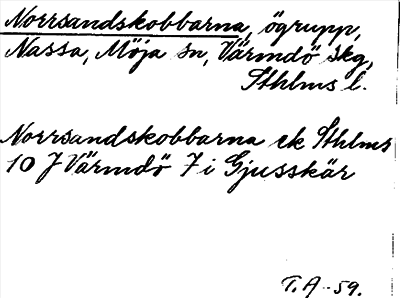 Norrsandskobbarna, ögrupp,
Nassa, Möja sn, Värmdö skg,
Sthlms l.
Norrsandskobbarna ek Sthlms
10 J Värmdö 7 i Gjusskär
T.A -59.